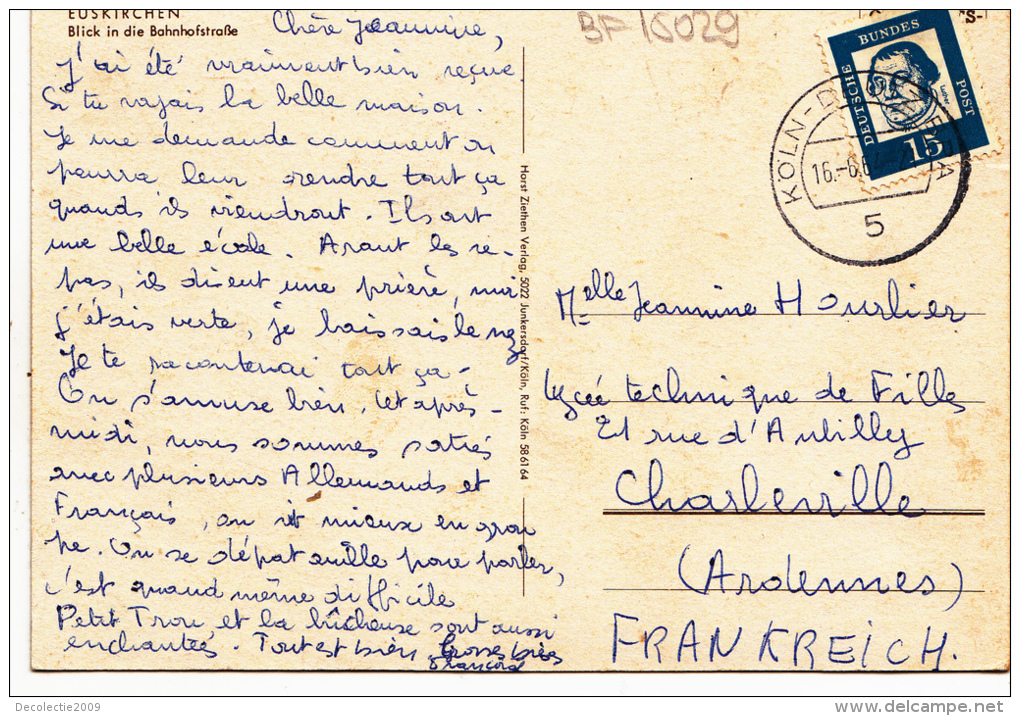 EUSKIRCHEN
Blick in die Bahnhofstraße
BF 15029
Chère Jeannine,
J'ai été vraiment bien reçue.
Si tu voyais la belle maison.
Je me demande comment on
pourra leur rendre tout ça
quands ils viendront. Ils ont
une belle école. Avant les re-
pas, ils disent une prière, moi
j'étais verte, je baissais le nez
Je te raconterai tout ça-
On s'amuse bien, cet après-
midi, nous sommes sortis
avec plusieurs Allemands et
Français, on rit mieux en grou
pe. On se dépatouille pour parler,
c'est quand même difficile
Petit Trou, et la bûcheuse sont aussi
enchantés. Tout est bien, Grosses bises
Horst Ziethen Verlag, 5022 Junkersdorf/Köln, Ruf: Köln 586164
DEUTSCHE BUNDES POST
Luther
15
KÖLN-
16.-6.6
5
Melle Jeannine Hourlier
Lycée technique de Filles
21 rue d'Aubilly
Charleville
(Ardennes)
FRANKREICH.
Decolectie2009